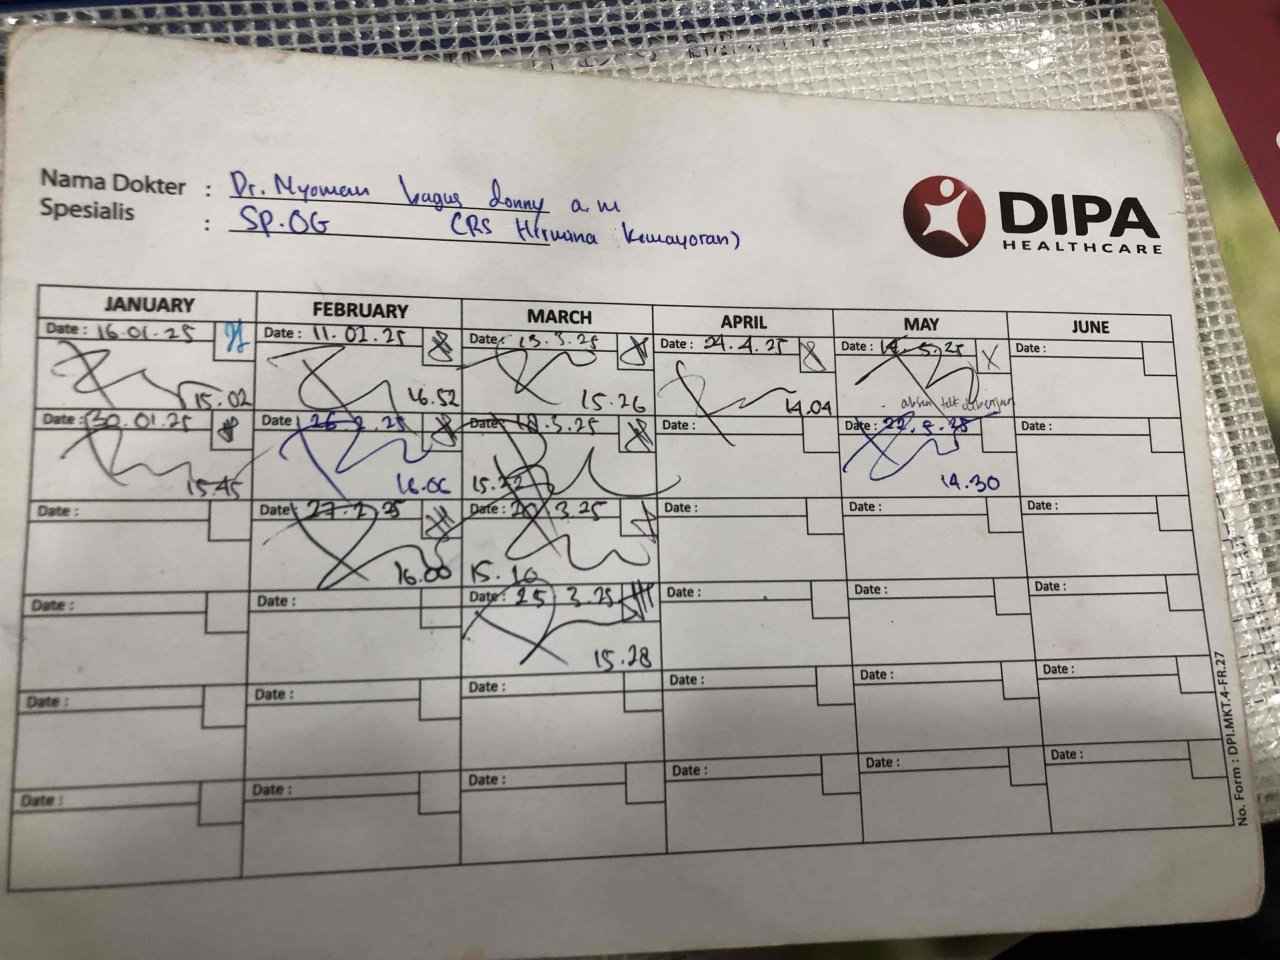 Nama Dokter : Dr. Nyoman bagus donny a.m
Spesialis : SP.OG (RS Hermina Kemayoran)
DIPA
HEALTHCARE
JANUARY FEBRUARY MARCH APRIL MAY JUNE
Date : 16.01.25 Date : 11.02.25 Date : 13.3.25 Date : 24.4.25 Date : 14.5.25 Date :
15.02 16.52 15.26 14.04
Date : 30.01.25 Date : 26.2.25 Date : 18.3.25 Date : Date : 22.5.25 Date :
15.45 16.06 15.22 14.30
Date : Date : 27.2.25 Date : 20.3.25 Date : Date : Date :
16.00 15.10
Date : Date : Date : 25 3.25 Date : Date : Date :
15.28
Date : Date : Date : Date : Date : Date :
Date : Date : Date : Date : Date : Date :
No. Form : DPI.MKT.4-FR.27